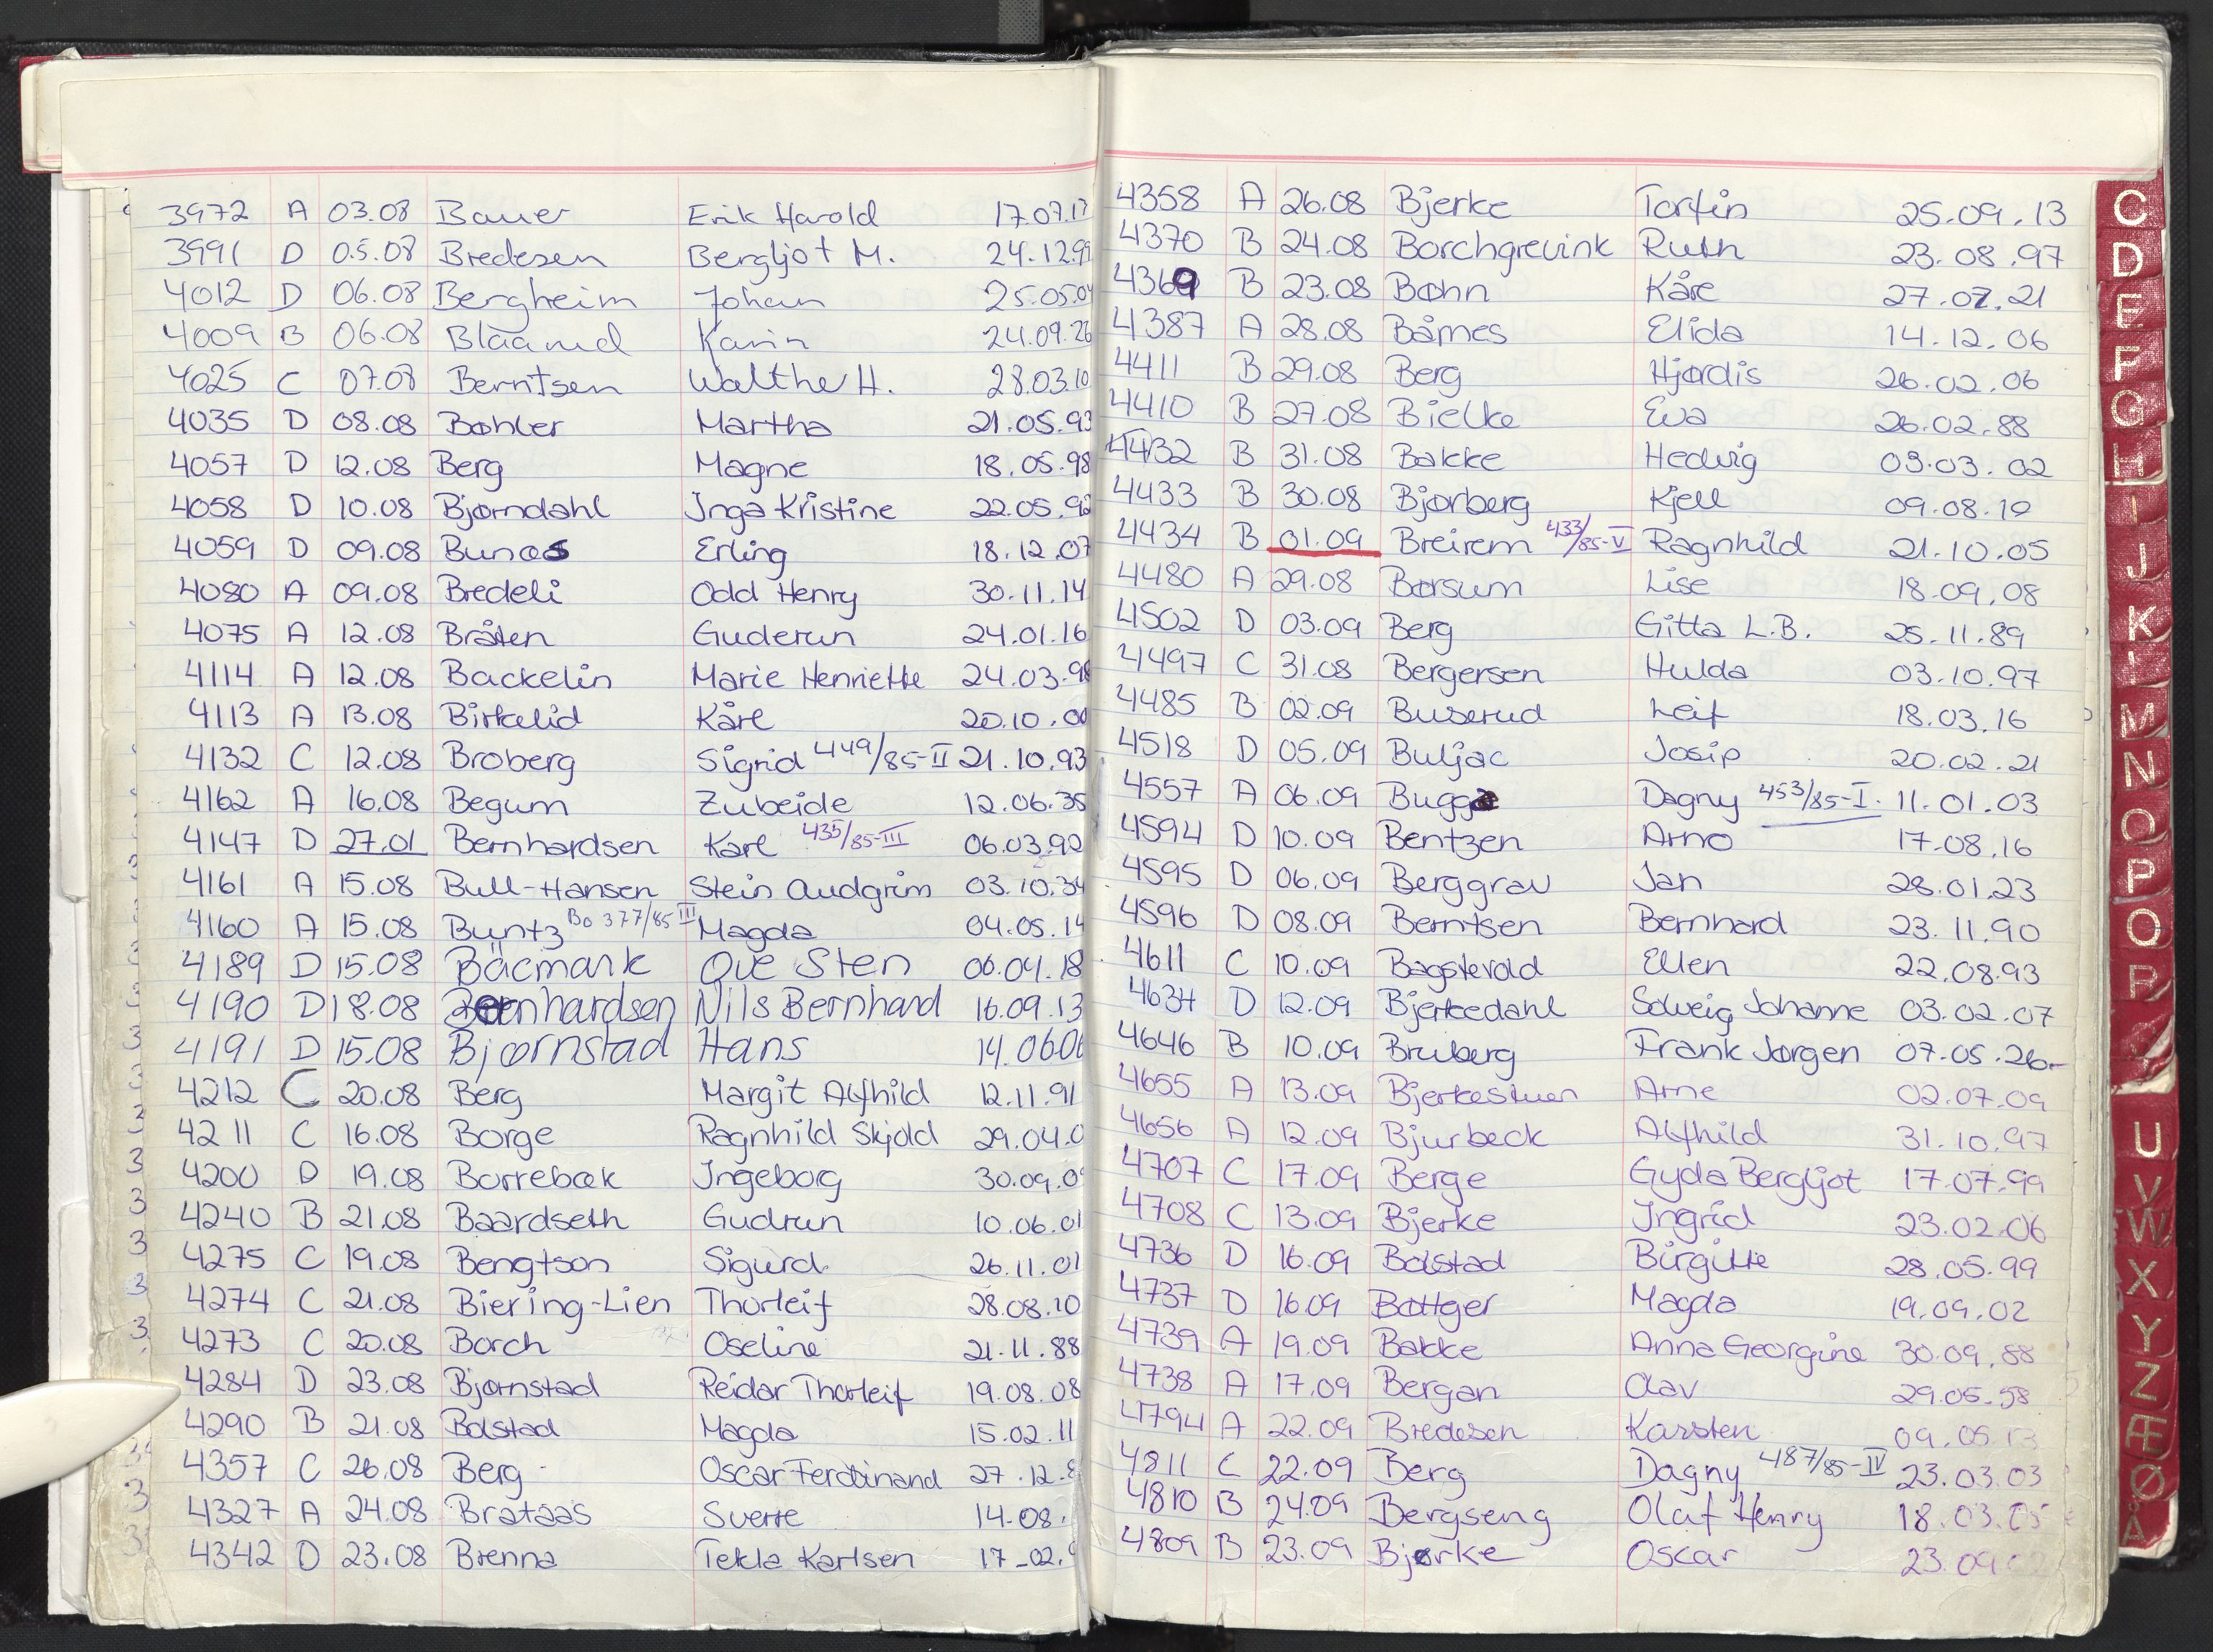 3972 A 03.08 Bauer Erik Harold 17.07.17
3991 D 05.08 Bredesen Bergljot M. 24.12.99
4012 D 06.08 Bergheim Johan 25.05.04
4009 B 06.08 Blaand Karin 24.09.26
4025 C 07.08 Berntsen Walther H. 28.03.10
4035 D 08.08 Bøhler Martha 21.05.93
4057 D 12.08 Berg Magne 18.05.98
4058 D 10.08 Bjørndahl Inga Kristine 22.05.92
4059 D 09.08 Bunæs Erling 18.12.07
4080 A 09.08 Bredeli Odd Henry 30.11.14
4075 A 12.08 Bråten Guderun 24.01.16
4114 A 12.08 Backelin Marie Henriette 24.03.98
4113 A 13.08 Birkelid Kåre 20.10.00
4132 C 12.08 Broberg Sigrid 449/85-II 21.10.93
4162 A 16.08 Begum Zubeide 12.06.35
4147 D 27.01 Bernhardsen Karl 435/85-III 06.03.92
4161 A 15.08 Bull-Hansen Stein Audgrim 03.10.34
4160 A 15.08 Büntz Bo 377/85 III Magda 04.05.14
4189 D 15.08 Bäcmark Ove Sten 06.04.18
4190 D 18.08 Bernhardsen Nils Bernhard 16.09.13
4191 D 15.08 Bjørnstad Hans 14.06.06
4212 C 20.08 Berg Margit Alfhild 12.11.91
4211 C 16.08 Borge Ragnhild Skjold 29.04.0
4200 D 19.08 Borrebæk Ingeborg 30.09.0
4240 B 21.08 Baardseth Gudrun 10.06.01
4275 C 19.08 Bengtson Sigurd 26.11.01
4274 C 21.08 Biering-Lien Thorleif 28.08.10
4273 C 20.08 Borch Oseline 21.11.88
4284 D 23.08 Bjørnstad Reidar Thorleif 19.08.08
4290 B 21.08 Bolstad Magda 15.02.11
4357 C 26.08 Berg Oscar Ferdinand 27.12.8
4327 A 24.08 Brataas Sverre 14.08.
4342 D 23.08 Brenna Tekla Karlsen 17.02.
4358 A 26.08 Bjerke Torfin 25.09.13
4370 B 24.08 Borchgrevink Ruth 23.08.97
4369 B 23.08 Bøhn Kåre 27.07.21
4387 A 28.08 Bårnes Elida 14.12.06
4411 B 29.08 Berg Hjørdis 26.02.06
4410 B 27.08 Bielke Eva 26.02.88
4432 B 31.08 Bakke Hedvig 03.03.02
4433 B 30.08 Bjørberg Kjell 09.08.19
4434 B 01.09 Breirem 433/85-V Ragnhild 21.10.05
4480 A 29.08 Børsum Lise 18.09.08
4502 D 03.09 Berg Gitta L.B. 25.11.89
4497 C 31.08 Bergersen Hulda 03.10.97
4485 B 02.09 Buserud Leif 18.03.16
4518 D 05.09 Buljac Josip 20.02.21
4557 A 06.09 Bugge Dagny 453/85-I. 11.01.03
4594 D 10.09 Bentzen Arno 17.08.16
4595 D 06.09 Berggrav Jan 28.01.23
4596 D 08.09 Berntsen Bernhard 23.11.90
4611 C 10.09 Bagstevold Ellen 22.08.93
4634 D 12.09 Bjerkedahl Solveig Johanne 03.02.07
4646 B 10.09 Bruberg Frank Jørgen 07.05.26
4655 A 13.09 Bjerkestuen Arne 02.07.09
4656 A 12.09 Bjurbeck Alfhild 31.10.97
4707 C 17.09 Berge Gyda Bergljot 17.07.99
4708 C 13.09 Bjerke Ingrid 23.02.06
4736 D 16.09 Bolstad Birgitte 28.05.99
4737 D 16.09 Bøttger Magda 19.09.02
4739 A 19.09 Bakke Anna Georgine 30.09.88
4738 A 17.09 Bergan Olav 29.05.58
4794 A 22.09 Bredesen Karsten 09.05.13
4811 C 22.09 Berg Dagny 487/85-IV 23.03.03
4810 B 24.09 Bergseng Olaf Henry 18.03.05
4809 B 23.09 Bjørke Oscar 23.09
C
D
E
F
G
H
I
J
K
L
M
N
O
P
Q
R
U
V
W
X
Y
Z
Æ
Ø
Å